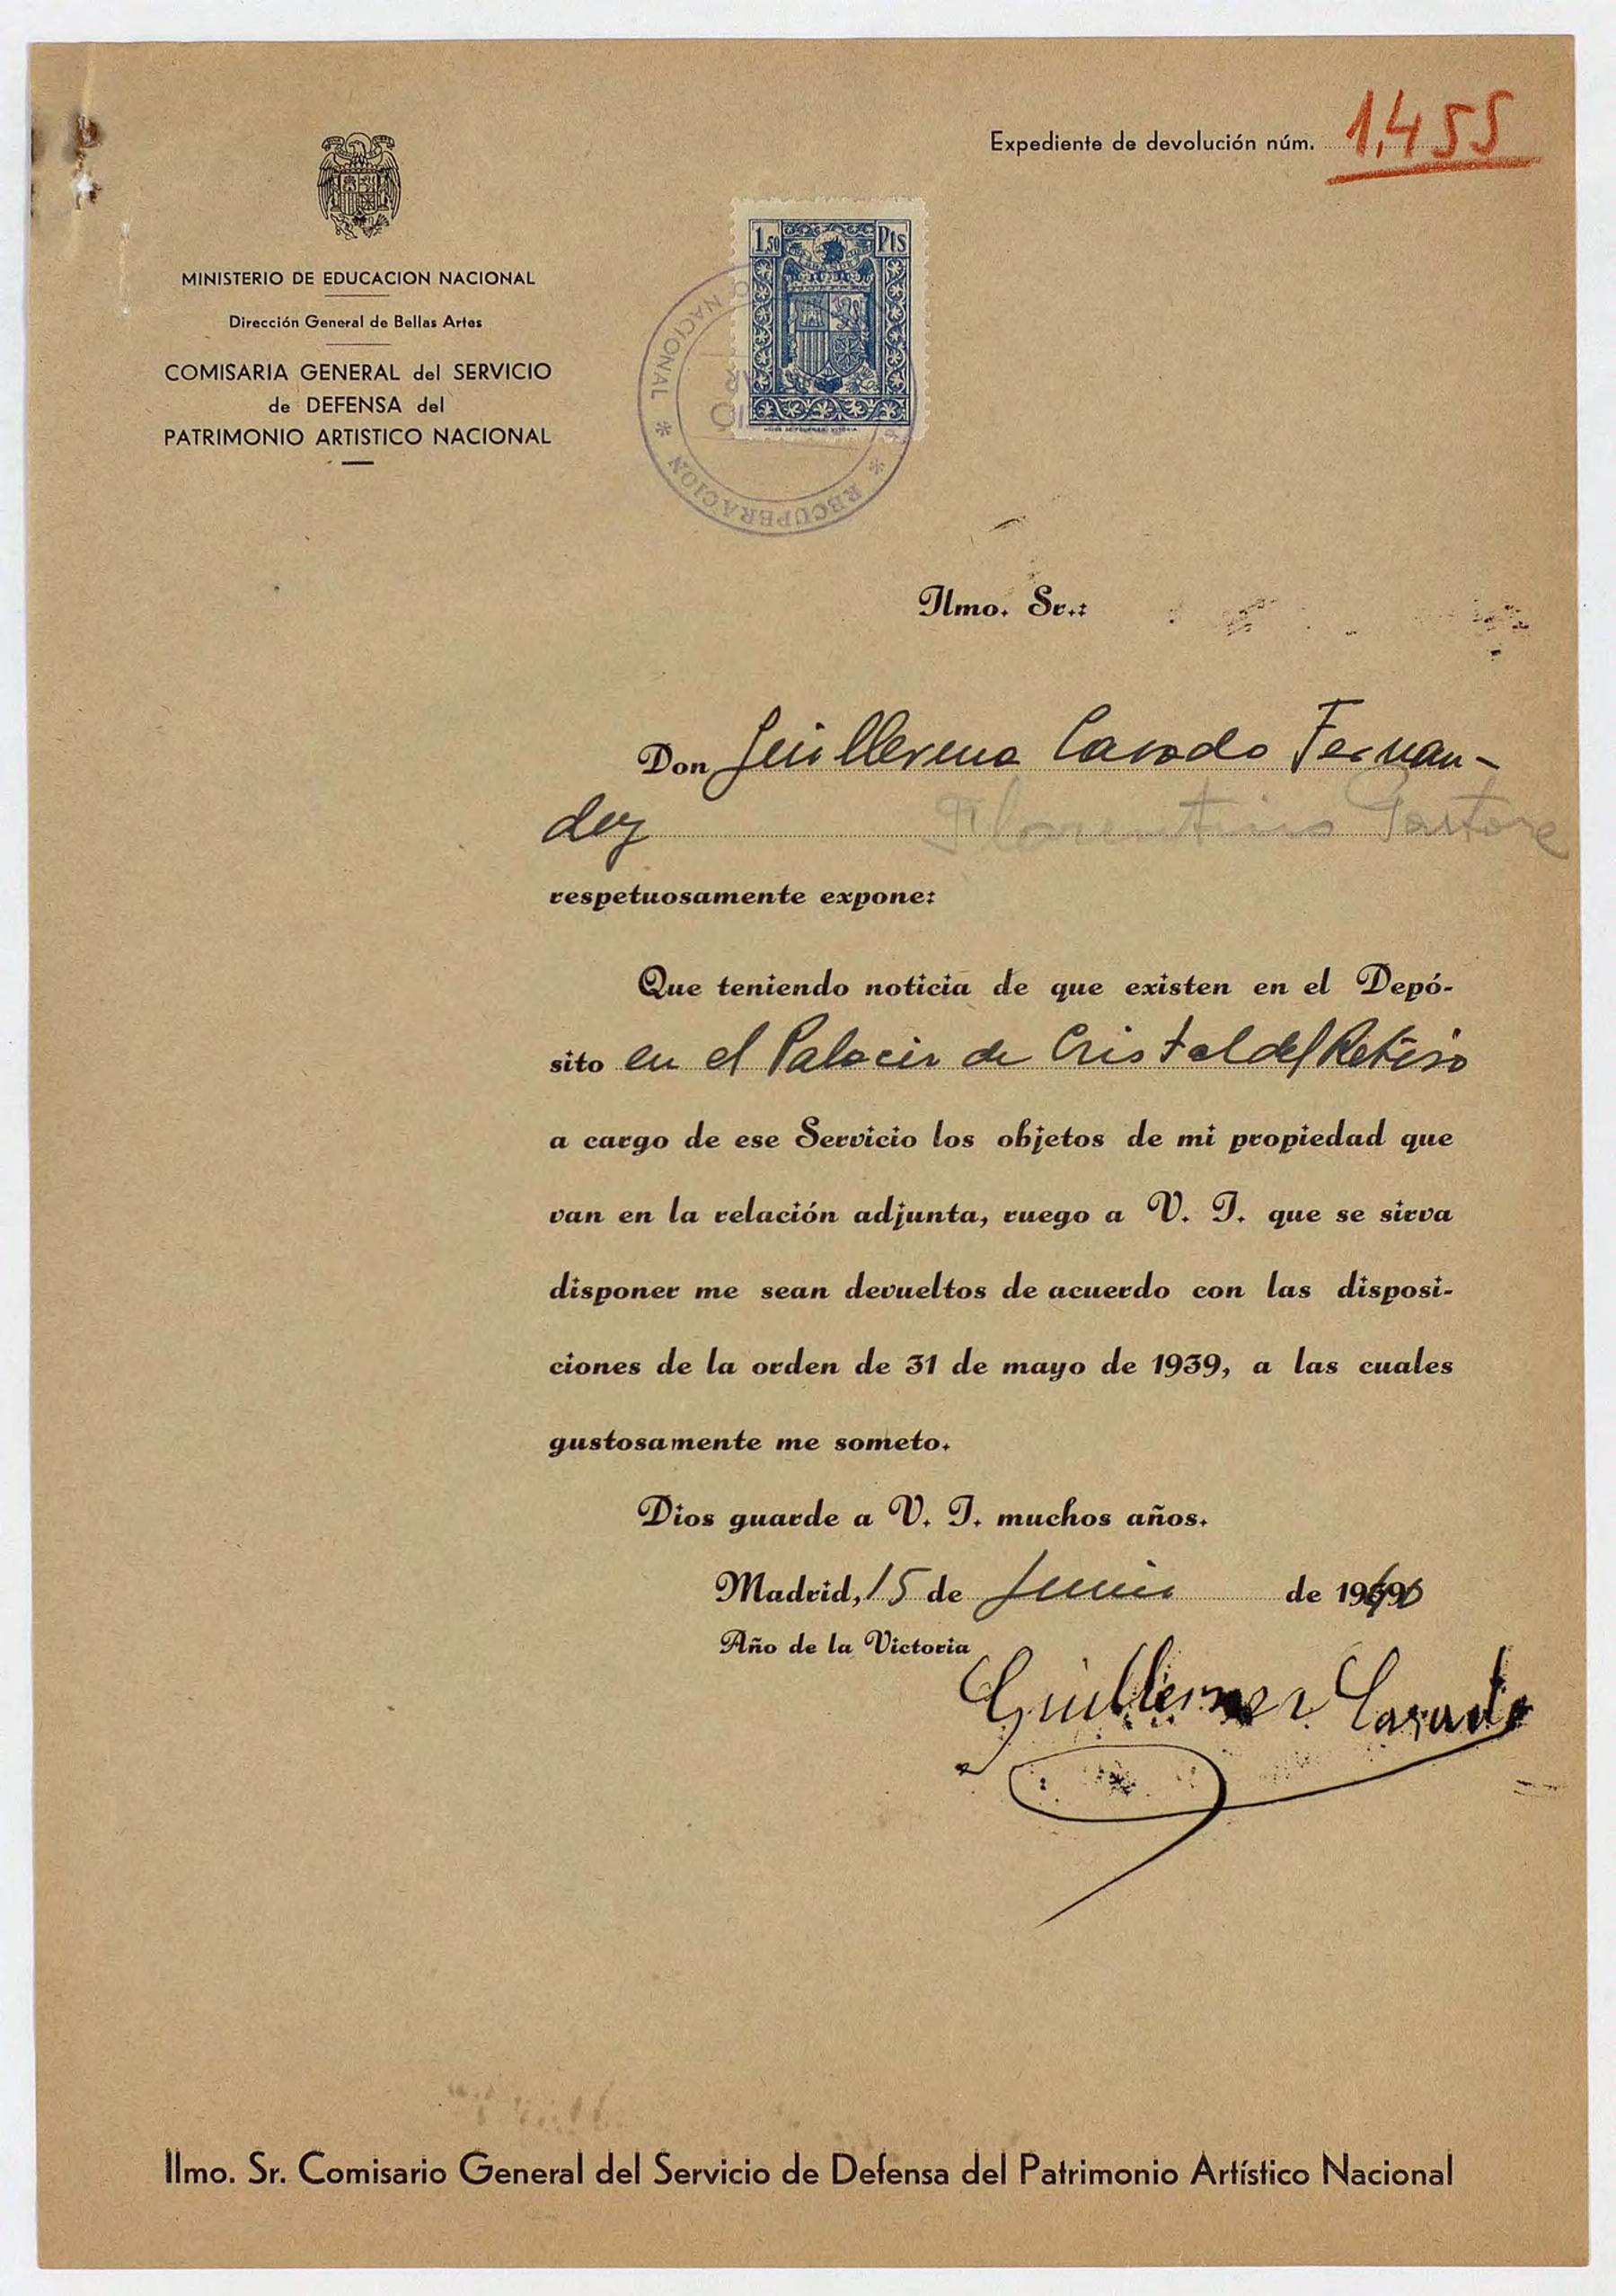 Expediente de devolución núm. 1,455
MINISTERIO DE EDUCACION NACIONAL
Dirección General de Bellas Artes
COMISARIA GENERAL del SERVICIO
de DEFENSA del
PATRIMONIO ARTISTICO NACIONAL
1,50 Pts
NACIONAL * RECUPERACION *
Ilmo. Sr.:
Don Guillermo Casado Fernan-
dez Florentino Pastor
respetuosamente expone:
Que teniendo noticia de que existen en el Depó-
sito en el Palacio de Cristal del Retiro
a cargo de ese Servicio los objetos de mi propiedad que
van en la relación adjunta, ruego a V. I. que se sirva
disponer me sean devueltos de acuerdo con las disposi-
ciones de la orden de 31 de mayo de 1939, a las cuales
gustosamente me someto.
Dios guarde a V. I. muchos años.
Madrid, 15 de Junio de 1940
Año de la Victoria
Guillermo Casado
Ilmo. Sr. Comisario General del Servicio de Defensa del Patrimonio Artístico Nacional